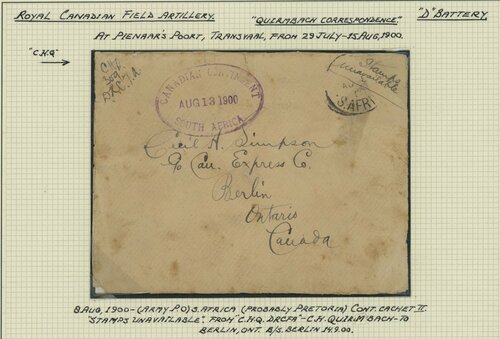 ROYAL CANADIAN FIELD ARTILLERY. "QUIRMBACH CORRESPONDENCE" "D" BATTERY.
AT PIENAAR'S POORT, TRANSVAAL, FROM 29 JULY-15 AUG, 1900.
"C.H.Q."
C.H.Q.
D.R.C.F.A
CANADIAN CONTINGENT
AUG 13 1900
SOUTH AFRICA
Stamps
unavailable
S. AFRI
Cecil H. Simpson
c/o Can. Express Co.
Berlin
Ontario
Canada
8 AUG, 1900-(ARMY P.O) S. AFRICA (PROBABLY PRETORIA) CONT. CACHET II.
"STAMPS UNAVAILABLE". FROM "C.H.Q. DRCFA"-C.H. QUIRMBACH-TO
BERLIN, ONT. B/S. BERLIN 14.9.00.